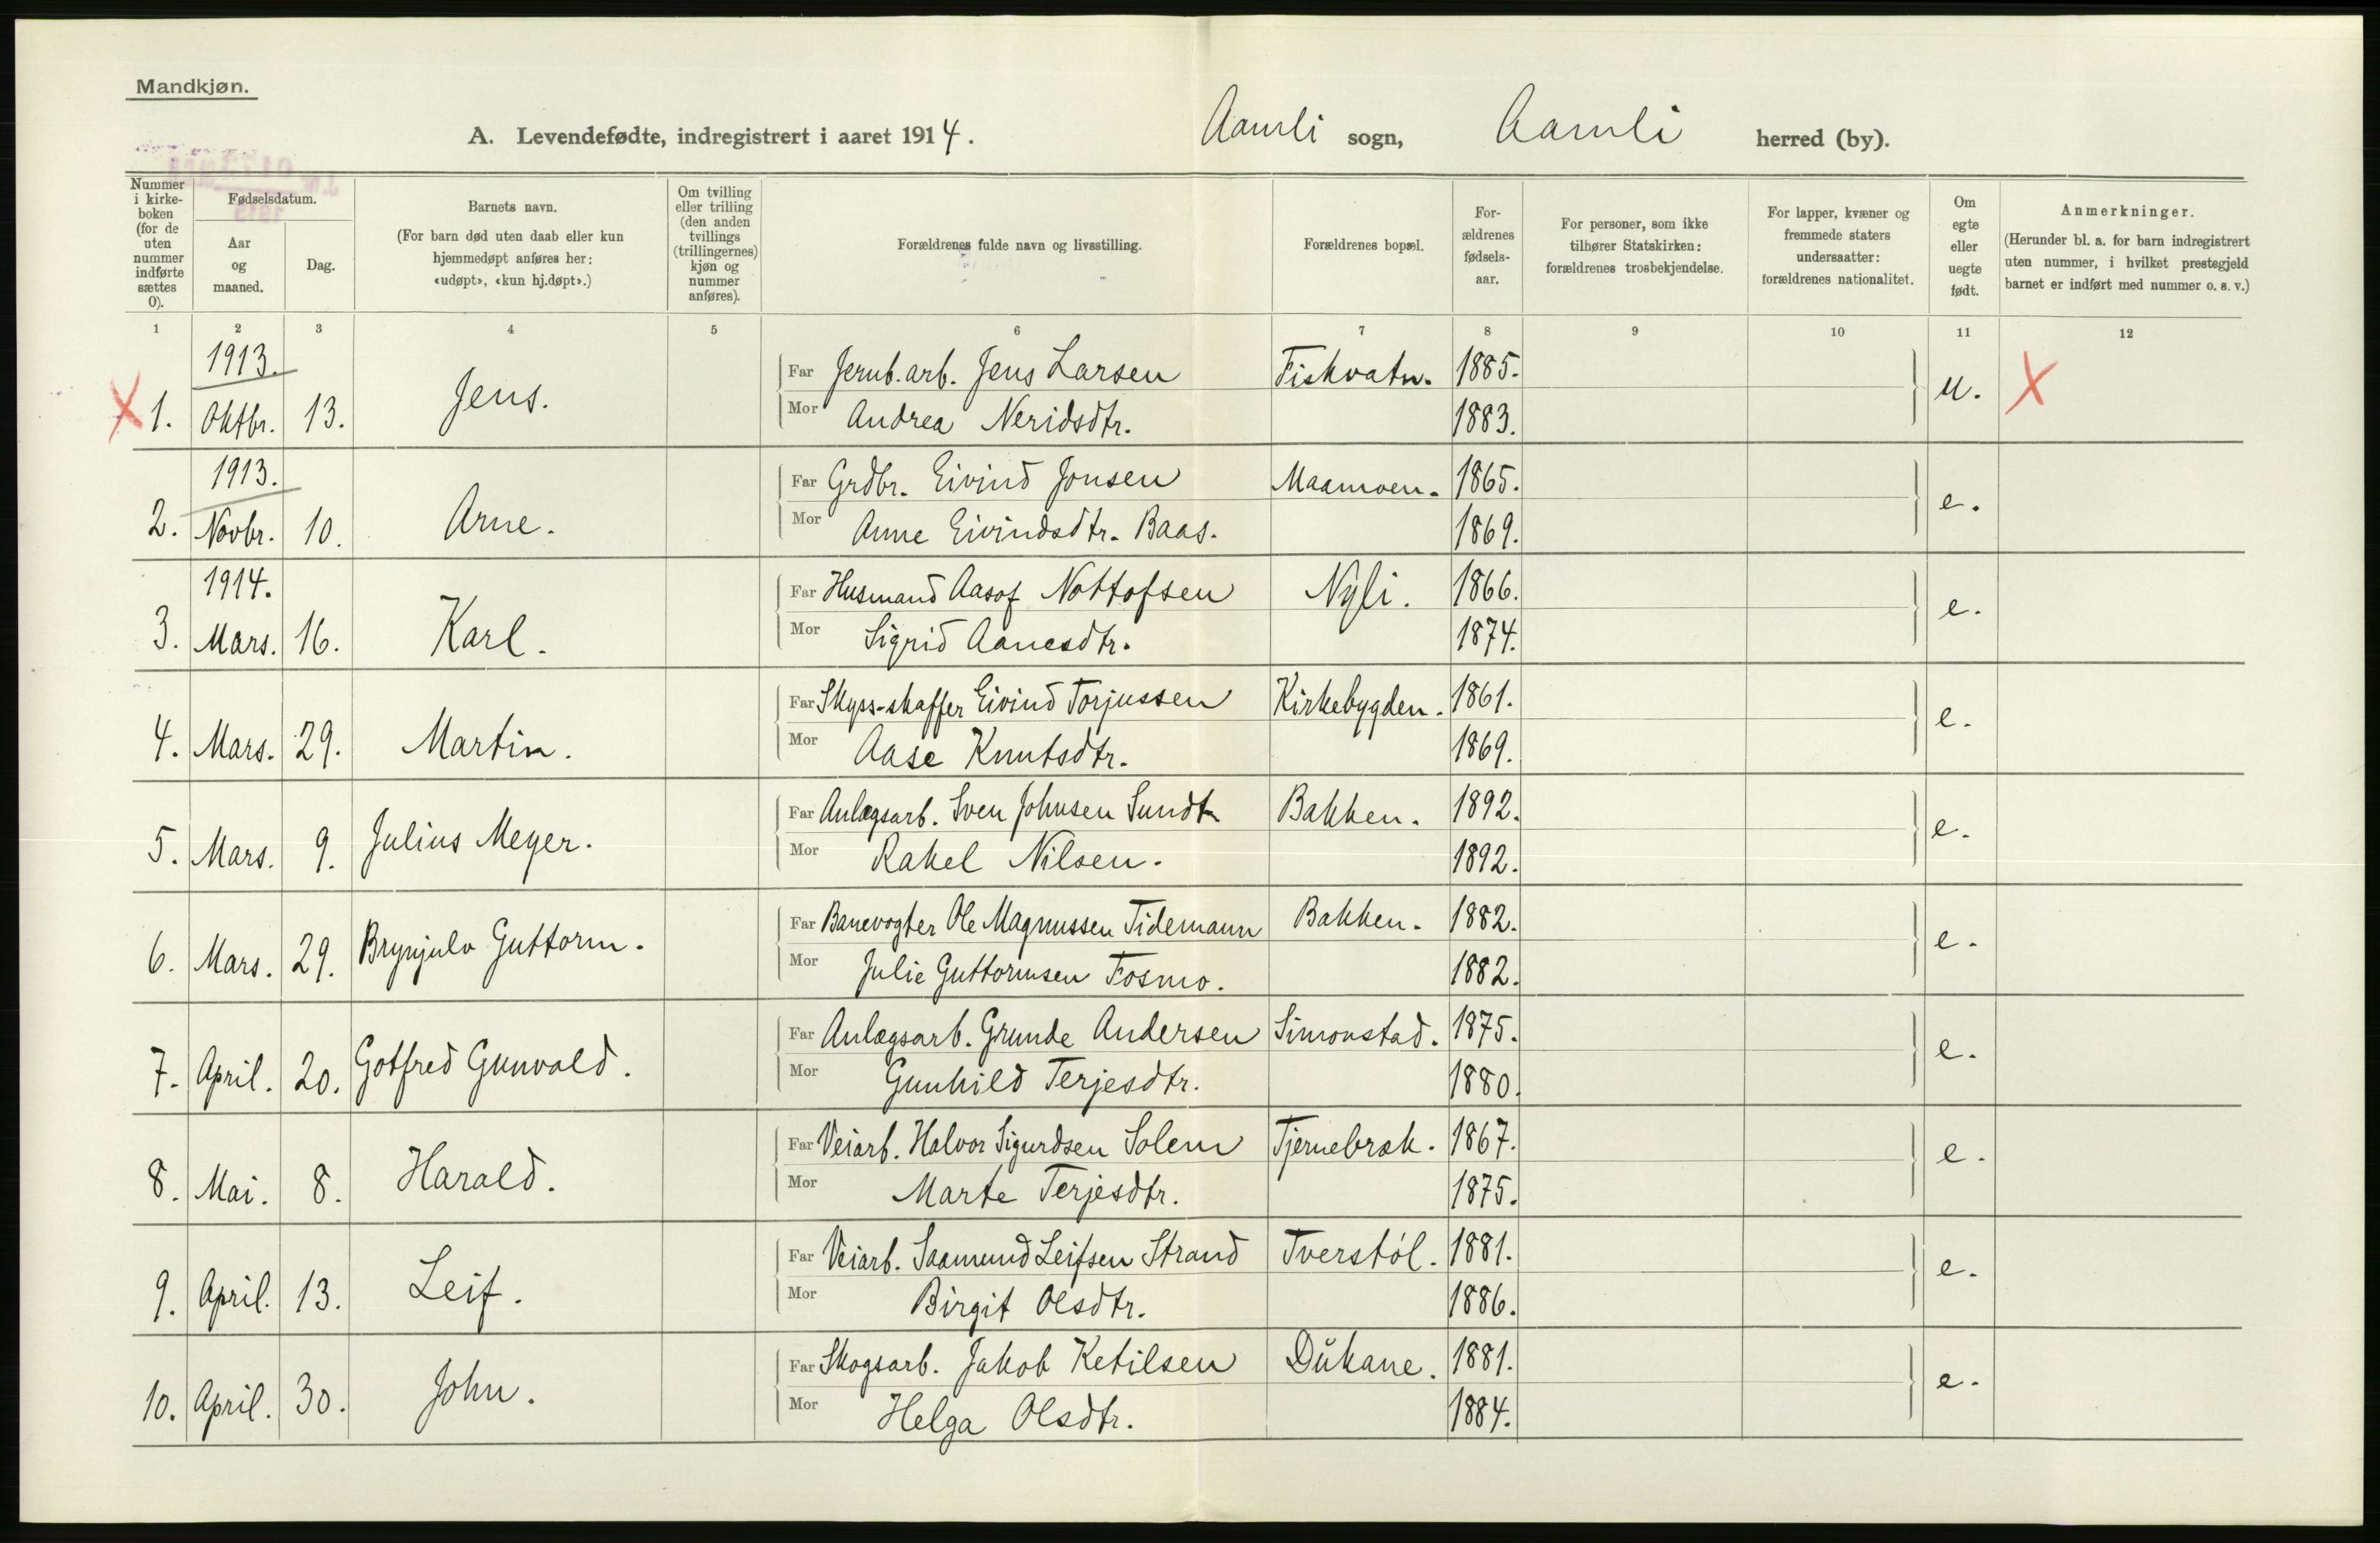 Mandkjøn.
A. Levendefødte, indregistrert i aaret 1914. Aamli sogn, Aamli herred (by).
Nummer i kirkeboken (for de uten nummer indførte sættes 0).
Fødselsdatum.
Aar og maaned.
Dag.
Barnets navn.
(For barn død uten daab eller kun hjemmedøpt anføres her: «udøpt», «kun hj.døpt».)
Om tvilling eller trilling (den anden tvillings (trillingernes) kjøn og nummer anføres).
Forældrenes fulde navn og livsstilling.
Forældrenes bopæl.
Forældrenes fødselsaar.
For personer, som ikke tilhører Statskirken: forældrenes trosbekjendelse.
For lapper, kvæner og fremmede staters undersaatter: forældrenes nationalitet.
Om egte eller uegte født.
Anmerkninger.
(Herunder bl. a. for barn indregistrert uten nummer, i hvilket prestegjeld barnet er indført med nummer o. s. v.)
1 2 3 4 5 6 7 8 9 10 11 12
1913.
X 1. Oktbr. 13. Jens. Far Jernb.arb. Jens Larsen Fiskvatn. 1885. u. X
Mor Andrea Neridsdtr. 1883.
1913.
2. Novbr. 10. Arne. Far Grdbr. Eivind Jonsen Maamoen. 1865. e.
Mor Anne Eivindsdtr. Baas. 1869.
1914.
3. Mars. 16. Karl. Far Husmand Aasof Nottofsen Nyli. 1866. e.
Mor Sigrid Aanesdtr. 1874.
4. Mars. 29. Martin. Far Skyss-skaffer Eivind Torjussen Kirkebygden. 1861. e.
Mor Aase Knutsdtr. 1869.
5. Mars. 9. Julius Meyer. Far Anlægsarb. Sven Johnsen Sundt Bakken. 1892. e.
Mor Rakel Nilsen. 1892.
6. Mars. 29. Brynjulv Guttorm. Far Banevogter Ole Magnussen Tidemann Bakken. 1882. e.
Mor Julie Guttormsen Fosmo. 1882.
7. April. 20. Gotfred Gunvald. Far Anlægsarb. Grunde Andersen Simonstad. 1875. e.
Mor Gunhild Terjesdtr. 1880.
8. Mai. 8. Harald. Far Veiarb. Halvor Sigurdsen Solem Tjernebræk. 1867. e.
Mor Marte Terjesdtr. 1875.
9. April. 13. Leif. Far Veiarb. Saamund Leifsen Strand Tverstøl. 1881. e.
Mor Birgit Olsdtr. 1886.
10. April. 30. John. Far Skogsarb. Jakob Ketilsen Dŭkane. 1881. e.
Mor Helga Olsdtr. 1884.